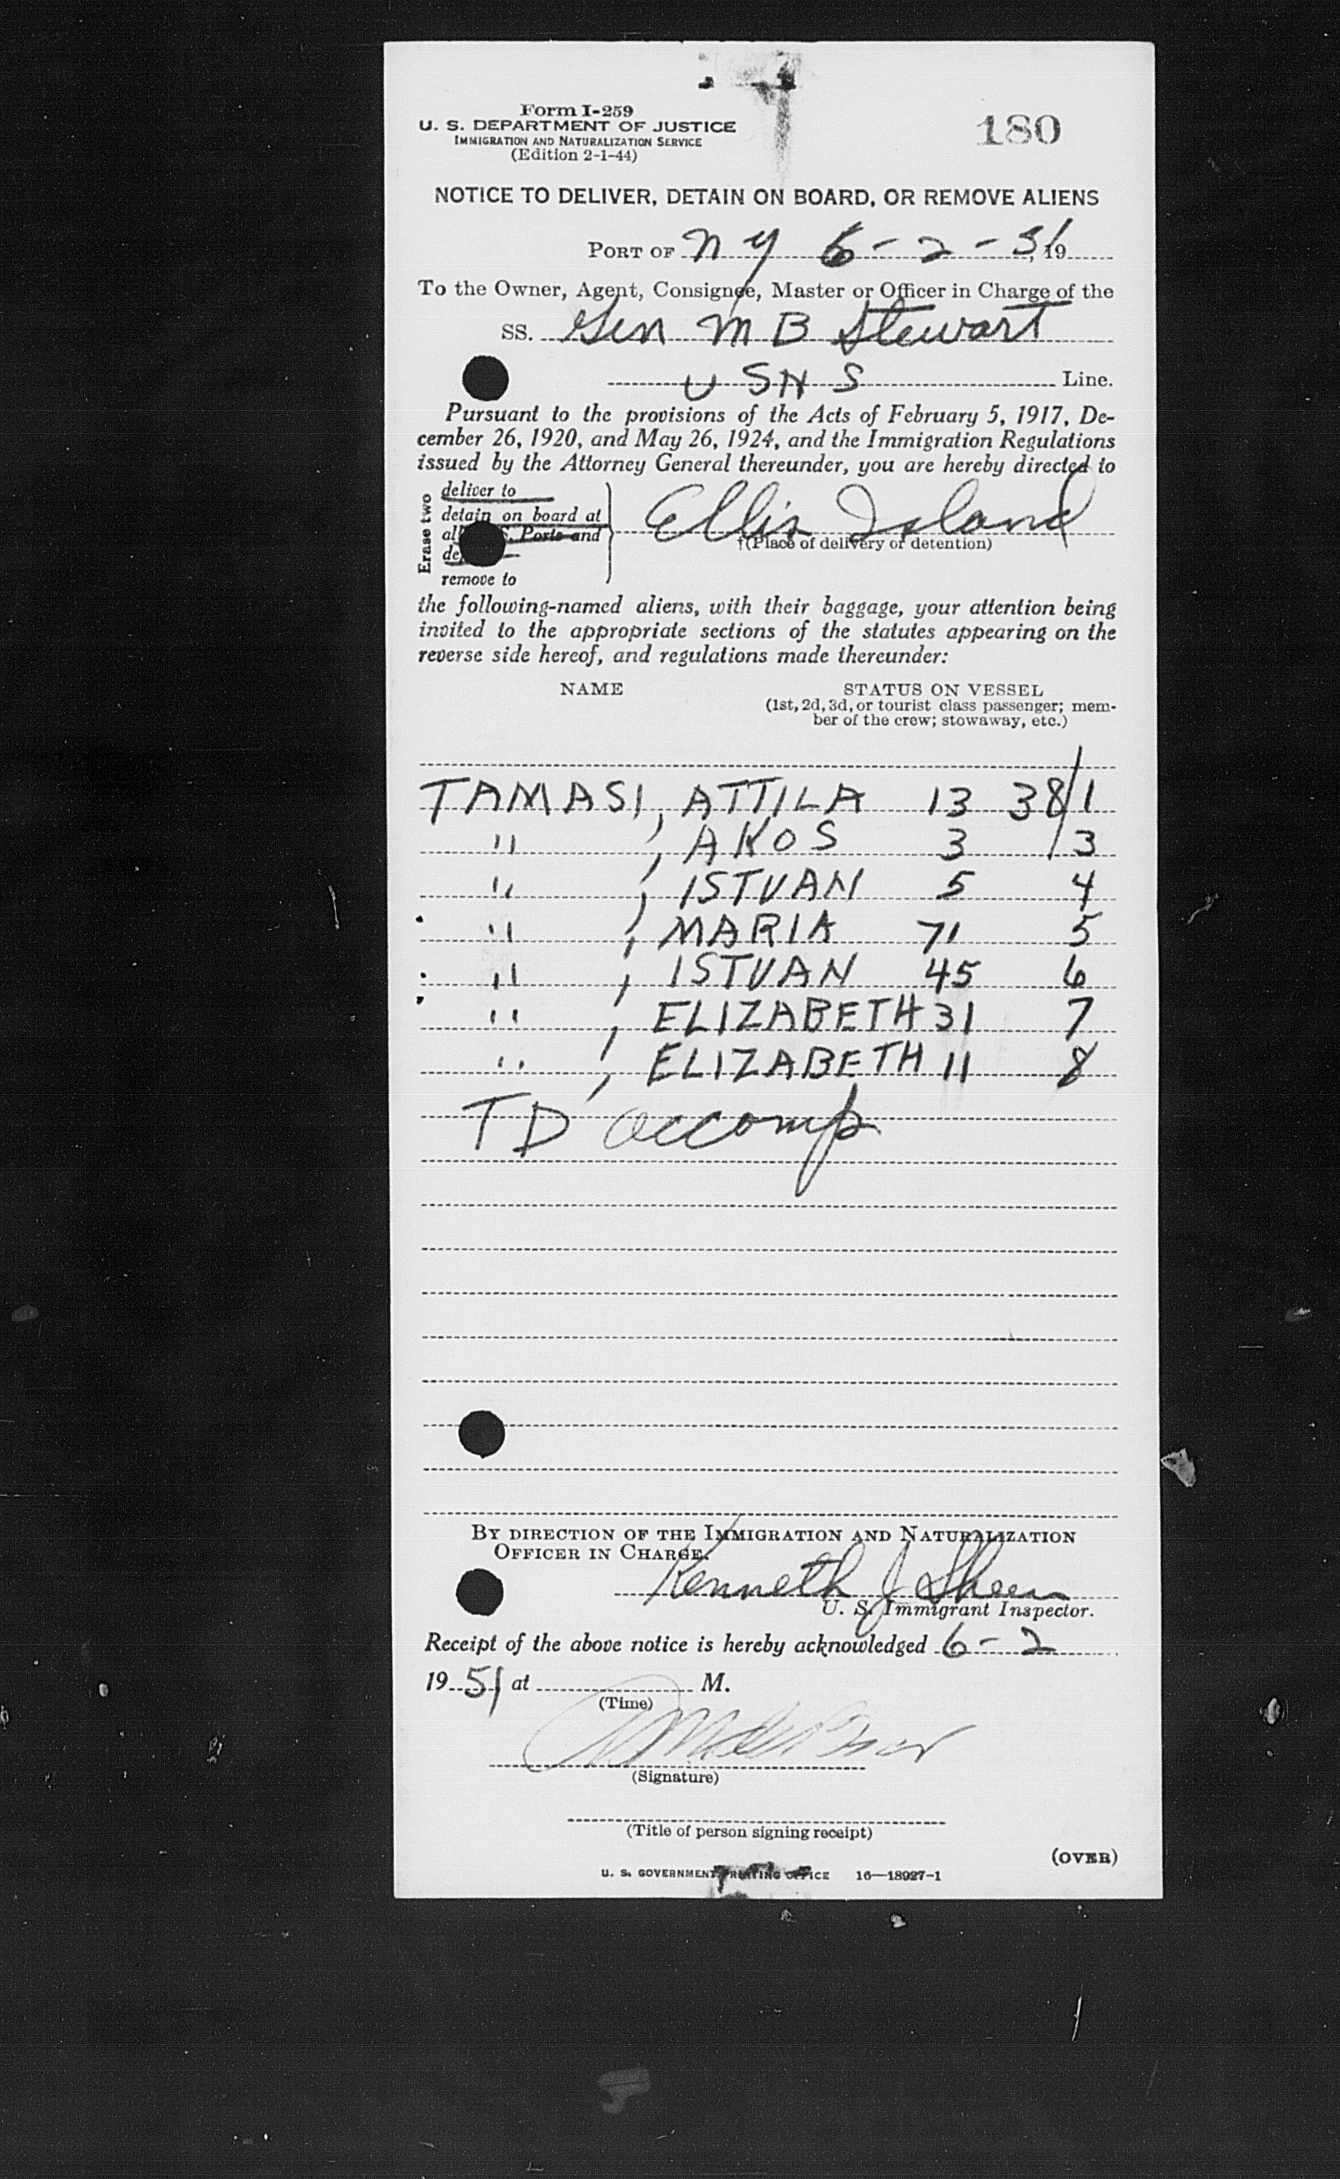 Form I-259
U. S. DEPARTMENT OF JUSTICE
IMMIGRATION AND NATURALIZATION SERVICE
(Edition 2-1-44)
180
NOTICE TO DELIVER, DETAIN ON BOARD, OR REMOVE ALIENS
PORT OF N Y 6-2-51, 19
To the Owner, Agent, Consignee, Master or Officer in Charge of the
SS. Gen M B Stewart
U S N S Line.
Pursuant to the provisions of the Acts of February 5, 1917, De-
cember 26, 1920, and May 26, 1924, and the Immigration Regulations
issued by the Attorney General thereunder, you are hereby directed to
Erase two
deliver to
detain on board at
Ports and
remove to
Ellis Island
†(Place of delivery or detention)
the following-named aliens, with their baggage, your attention being
invited to the appropriate sections of the statutes appearing on the
reverse side hereof, and regulations made thereunder:
NAME STATUS ON VESSEL
(1st, 2d, 3d, or tourist class passenger; mem-
ber of the crew; stowaway, etc.)
TAMASI, ATTILA 13 38/1
" , AKOS 3 /3
" , ISTVAN 5 4
" , MARIA 71 5
" , ISTVAN 45 6
" , ELIZABETH 31 7
" , ELIZABETH 11 8
TD accomp
BY DIRECTION OF THE IMMIGRATION AND NATURALIZATION
OFFICER IN CHARGE.
Kenneth J Sheen
U. S. Immigrant Inspector.
Receipt of the above notice is hereby acknowledged 6-2
1951 at M.
(Time)
(Signature)
(Title of person signing receipt)
(OVER)
U. S. GOVERNMENT PRINTING OFFICE 16—18927-1